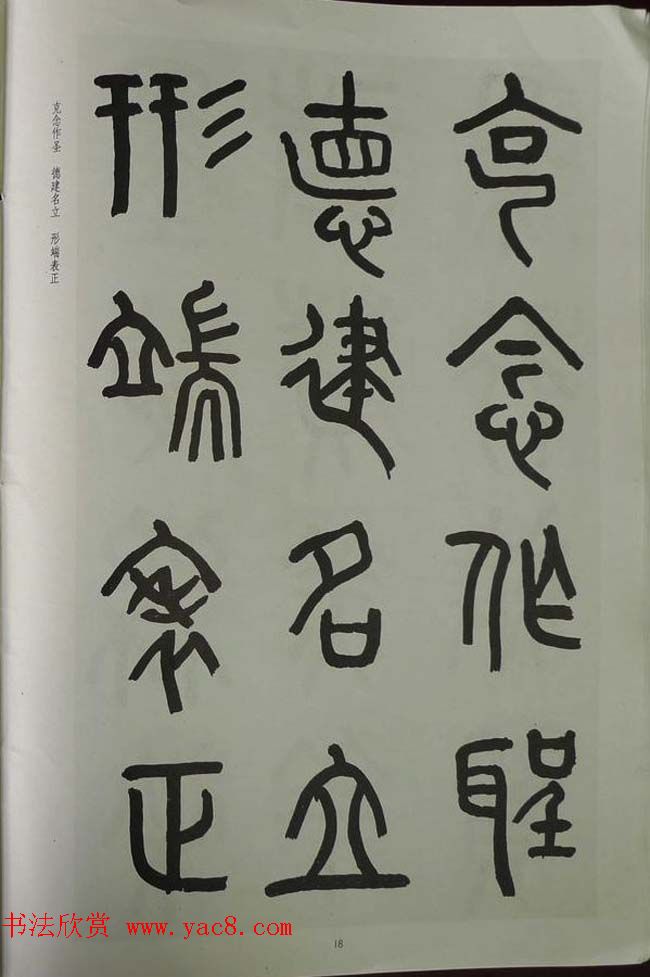 克念作聖
德建名立
形端表正
克念作圣 德建名立 形端表正
18
书法欣赏 www.yac8.com